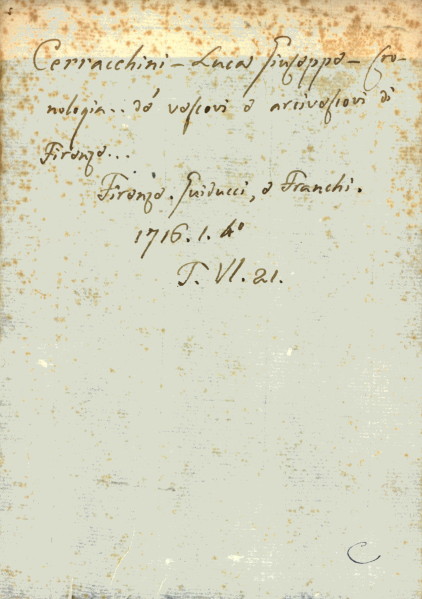 Cerracchini - Luca Giuseppe - Cro-
nologia.. de' vescovi e arcivescovi di
Firenze...
Firenze. Guiducci, e Franchi.
1716. 1. 4º
T. VI. 21.
C